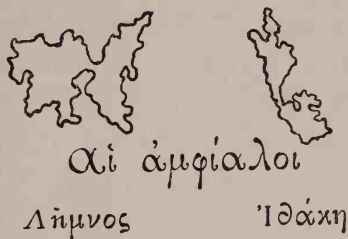 αἱ ἀμφίαλοι
Λῆμνος Ἰθάκη